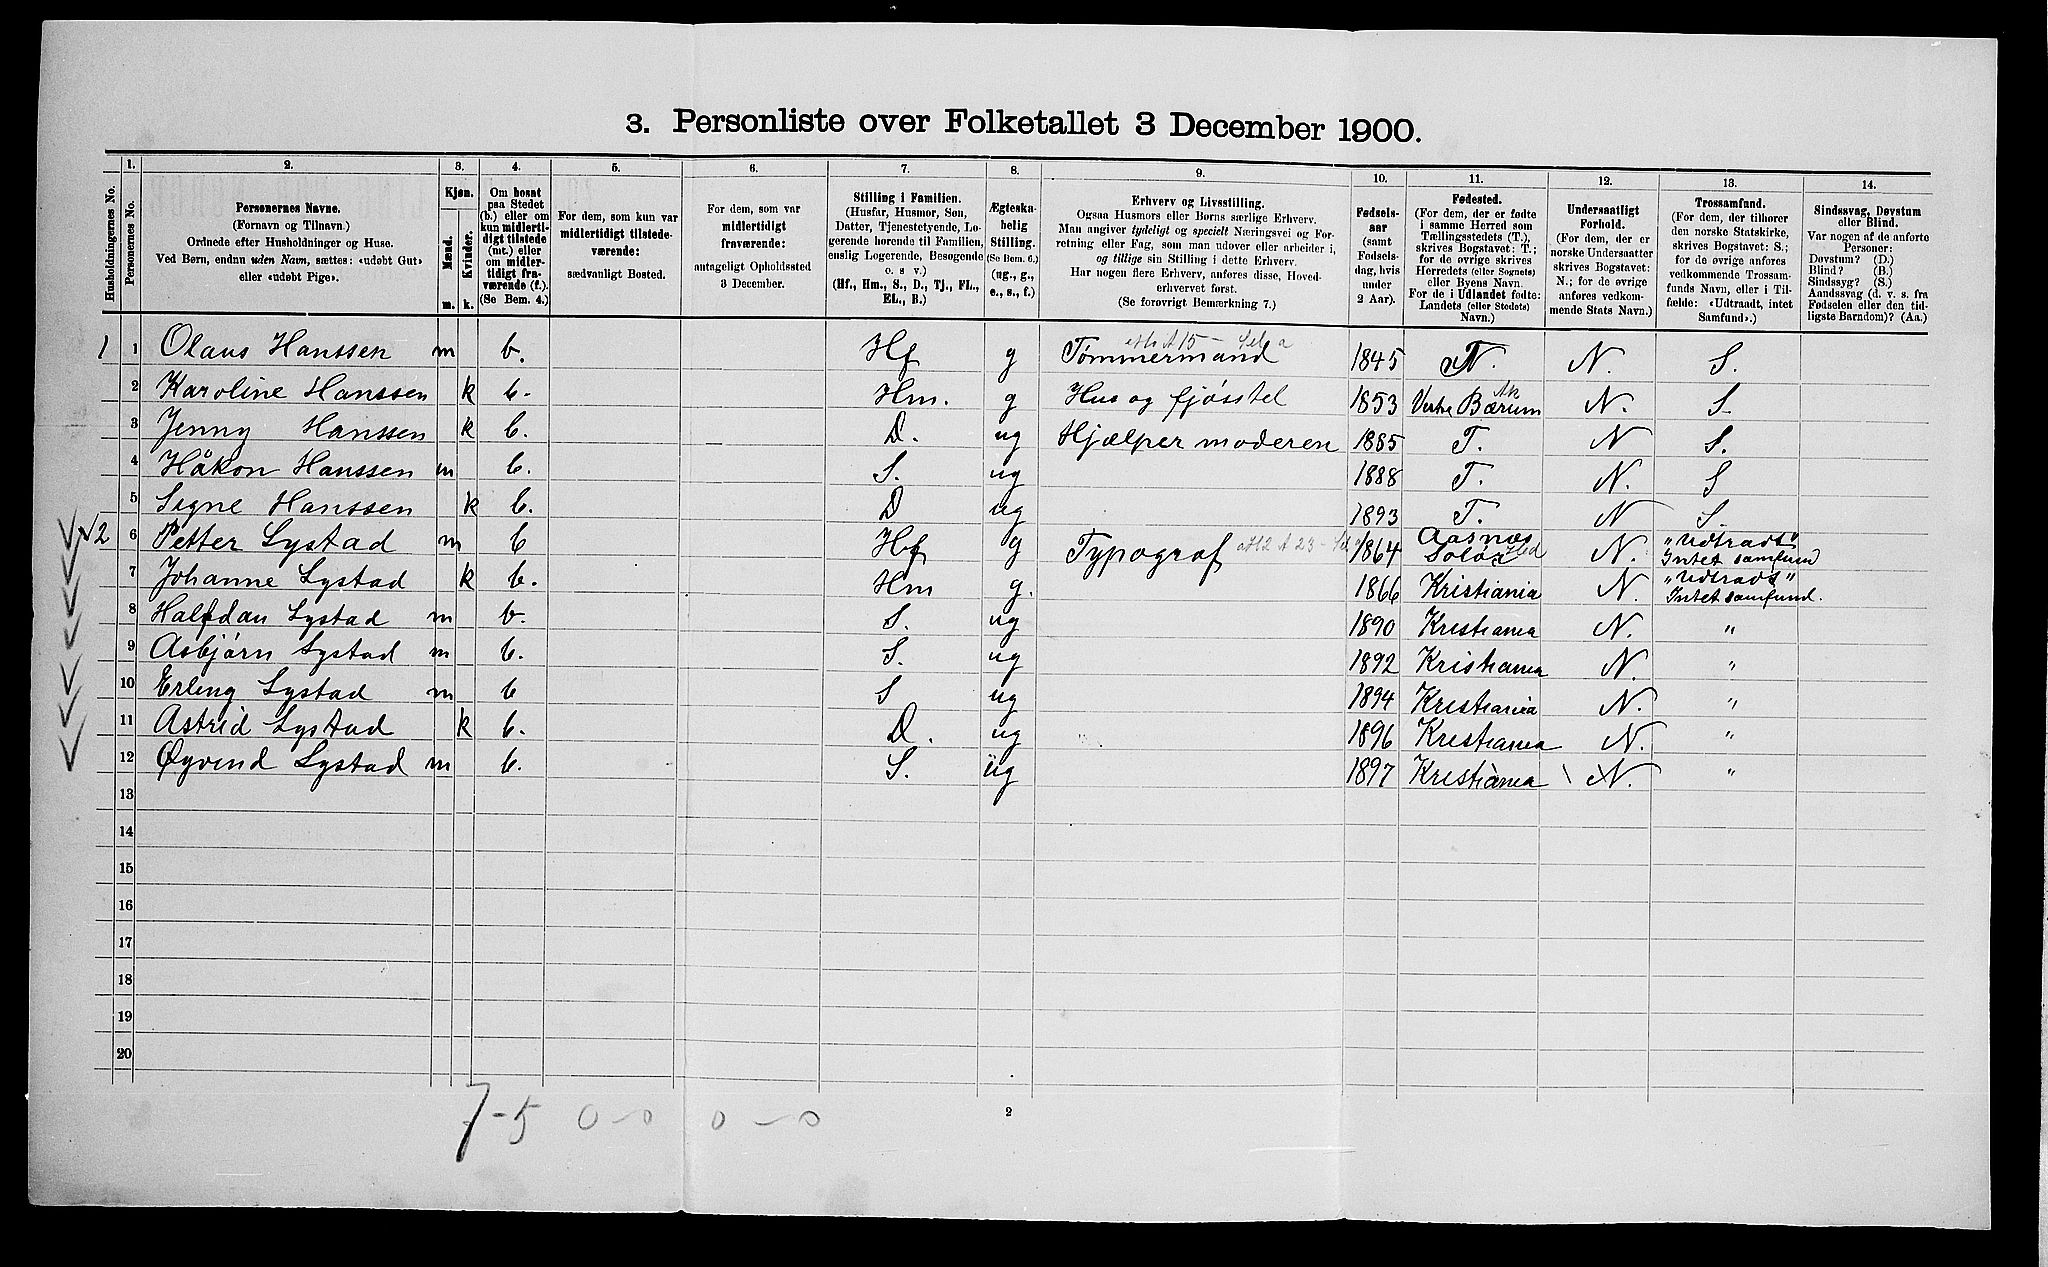 3. Personliste over Folketallet 3 December 1900.
Husholdningernes No.
1. Personernes No.
2. Personernes Navne. (Fornavn og Tilnavn.) Ordnede efter Husholdninger og Huse. Ved Børn, endnu uden Navn, sættes: «udøbt Gut» eller «udøbt Pige».
3. Kjøn. Mænd. m. Kvinder. k.
4. Om bosat paa Stedet (b.) eller om kun midlertidigt tilstede (mt.) eller om midlertidigt fraværende (f.). (Se Bem. 4.)
5. For dem, som kun var midlertidigt tilstedeværende: sædvanligt Bosted.
6. For dem, som var midlertidigt fraværende: antageligt Opholdssted 3 December.
7. Stilling i Familien. (Husfar, Husmor, Søn, Datter, Tjenestetyende, Logerende hørende til Familien, enslig Logerende, Besøgende o. s v.) (Hf., Hm., S., D., Tj., FL., EL., B.)
8. Ægteskabelig Stilling. (Se Bem. 6.) (ug., g., e., s., f.)
9. Erhverv og Livsstilling. Ogsaa Husmors eller Børns særlige Erhverv. Man angiver tydeligt og specielt Næringsvei og Forretning eller Fag, som man udøver eller arbeider i, og tillige sin Stilling i dette Erhverv. Har nogen flere Erhverv, anføres disse, Hovederhvervet først. (Se forøvrigt Bemærkning 7.)
10. Fødselsaar (samt Fødselsdag, hvis under 2 Aar).
11. Fødested. (For dem, der er fødte i samme Herred som Tællingsstedets (T.), skrives Bogstavet: T.; for de øvrige skrives Herredets (eller Sognets) eller Byens Navn. For de i Udlandet fødte: Landets (eller Stedets) Navn.)
12. Undersaatligt Forhold. (For dem, der er norske Undersaatter skrives Bogstavet: N.; for de øvrige anføres vedkommende Stats Navn.)
13. Trossamfund. (For dem, der tilhører den norske Statskirke, skrives Bogstavet: S.; for de øvrige anføres vedkommende Trossamfunds Navn, eller i Tilfælde: «Udtraadt, intet Samfund».)
14. Sindssvag, Døvstum eller Blind. Var nogen af de anførte Personer: Døvstum? (D.) Blind? (B.) Sindssyg? (S.) Aandssvag (d. v. s. fra Fødselen eller den tidligste Barndom)? (Aa.)
1 1 Olaus Hanssen m b. Hf g Tømmermand 1845 T. N. S.
2 Karoline Hanssen k b. Hm. g Hus og fjøsstel 1853 Vestre Bærum Ak N. S.
3 Jenny Hanssen k b. D. ug Hjælper moderen 1885 T. N S.
4 Håkon Hanssen m b. S. ug 1888 T. N. S
5 Signe Hanssen k b. D ug 1893 T. N S.
2 6 Petter Lystad m b Hf g Typograf 1864 Aasnæs Solør Hed N. "Udtradt" Intet samfund
7 Johanne Lystad k b. Hm g. 1866 Kristiania N. "Udtradt" Intet samfund.
8 Halfdan Lystad m b. S. ug 1890 Kristiania N. "
9 Asbjørn Lystad m b. S. ug 1892 Kristiania N. "
10 Erling Lystad m b S ug 1894 Kristiania N. "
11 Astrid Lystad k b. D. ug 1896 Kristiania N. "
12 Øyvind Lystad m b. S. ug 1897 Kristiania N. "
13
14
15
16
17
18
19
20
7-5 0-0 0-0
2